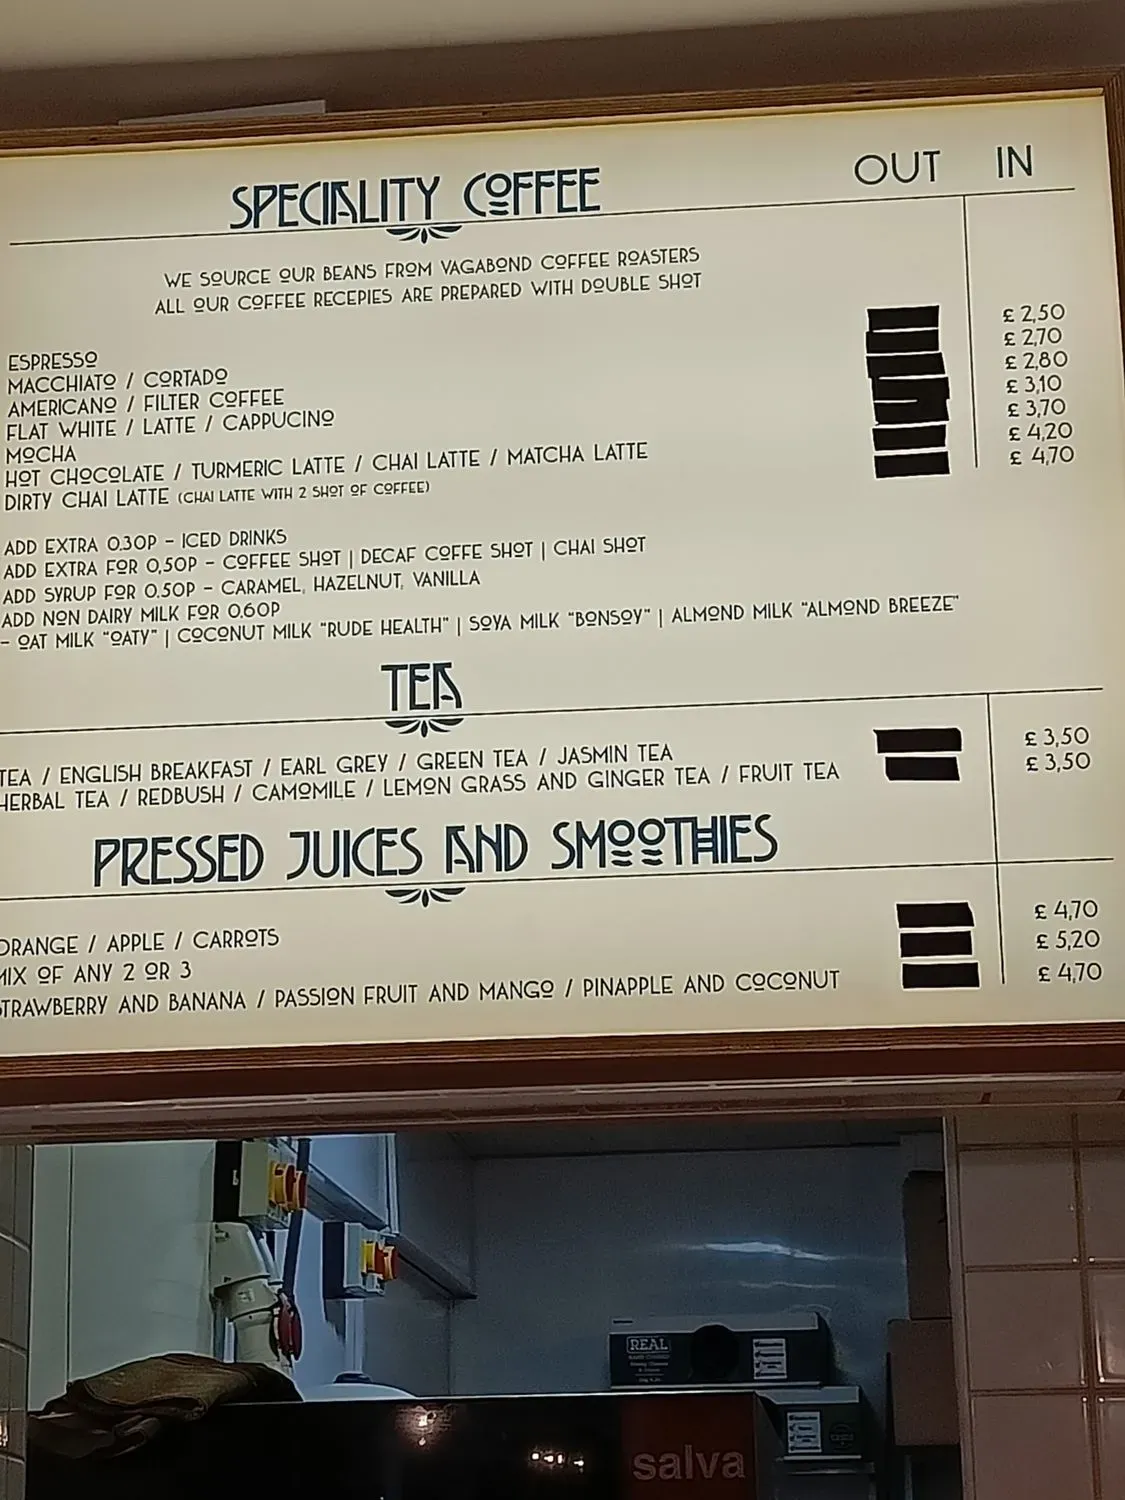 OUT IN
SPECIALITY COFFEE
WE SOURCE OUR BEANS FROM VAGABOND COFFEE ROASTERS
ALL OUR COFFEE RECEPIES ARE PREPARED WITH DOUBLE SHOT
ESPRESSO £ 2,50
MACCHIATO / CORTADO £ 2,70
AMERICANO / FILTER COFFEE £ 2,80
FLAT WHITE / LATTE / CAPPUCINO £ 3,10
MOCHA £ 3,70
HOT CHOCOLATE / TURMERIC LATTE / CHAI LATTE / MATCHA LATTE £ 4,20
DIRTY CHAI LATTE (CHAI LATTE WITH 2 SHOT OF COFFEE) £ 4,70
ADD EXTRA 0.30P - ICED DRINKS
ADD EXTRA FOR 0,50P - COFFEE SHOT | DECAF COFFE SHOT | CHAI SHOT
ADD SYRUP FOR 0.50P - CARAMEL, HAZELNUT, VANILLA
ADD NON DAIRY MILK FOR 0.60P
- OAT MILK "OATY" | COCONUT MILK "RUDE HEALTH" | SOYA MILK "BONSOY" | ALMOND MILK "ALMOND BREEZE"
TEA
TEA / ENGLISH BREAKFAST / EARL GREY / GREEN TEA / JASMIN TEA £ 3,50
HERBAL TEA / REDBUSH / CAMOMILE / LEMON GRASS AND GINGER TEA / FRUIT TEA £ 3,50
PRESSED JUICES AND SMOOTHIES
ORANGE / APPLE / CARROTS £ 4,70
MIX OF ANY 2 OR 3 £ 5,20
STRAWBERRY AND BANANA / PASSION FRUIT AND MANGO / PINAPPLE AND COCONUT £ 4,70
REAL
salva